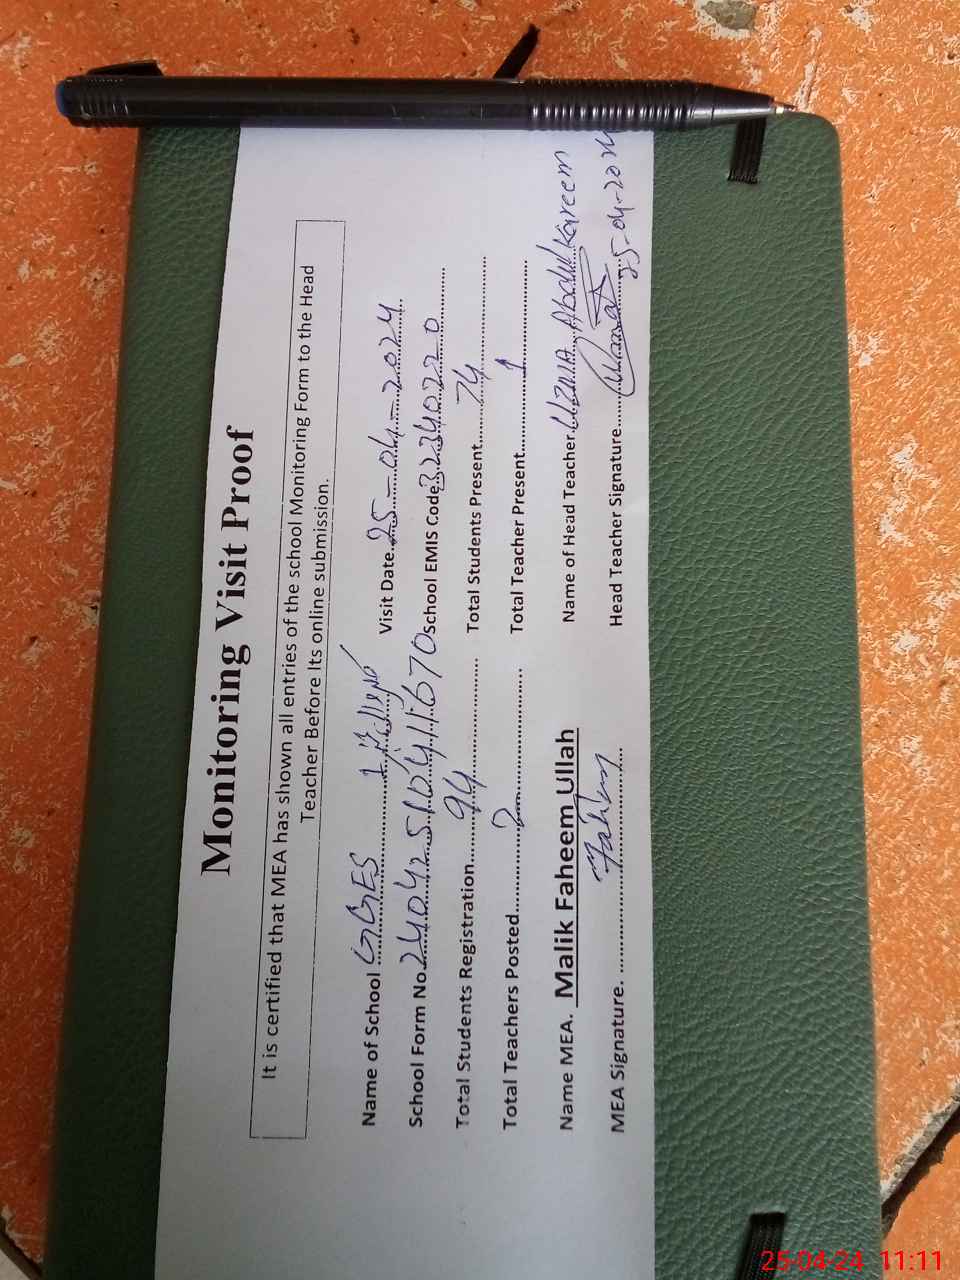 Monitoring Visit Proof
It is certified that MEA has shown all entries of the school Monitoring Form to the Head
Teacher Before Its online submission.
Name of School GGES 1 Visit Date. 25-04-2024
School Form No. 2404251041167 0 School EMIS Code 3234022 0
Total Students Registration 94 Total Students Present 74
Total Teachers Posted 2 Total Teacher Present 1
Name MEA. Malik Faheem Ullah Name of Head Teacher Uzma Abdul Kareem
MEA Signature. Faheem Head Teacher Signature 25-04-2024
25-04-24 11:11